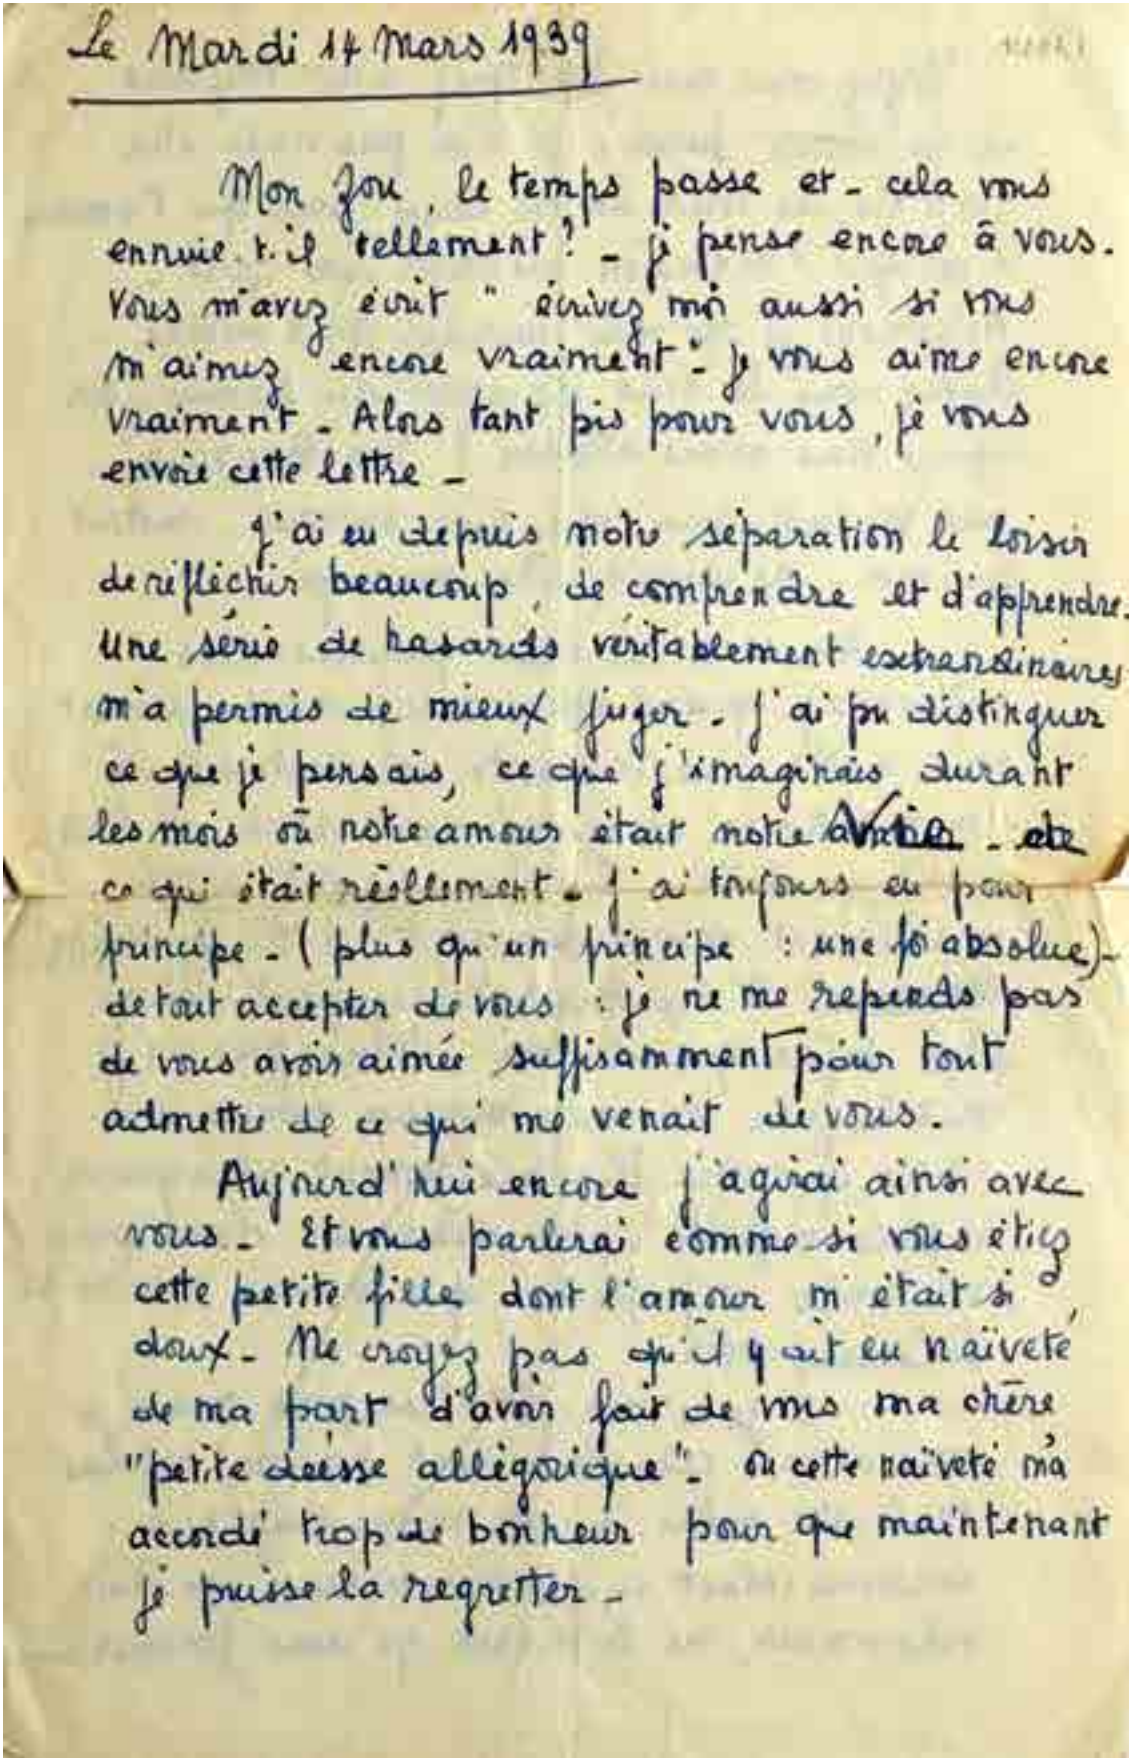 Le Mardi 14 Mars 1939
Mon Zou, le temps passe et - cela vous
ennuie-t-il tellement? - je pense encore à vous.
Vous m'avez écrit " écrivez moi aussi si vous
m'aimez encore vraiment". je vous aime encore
vraiment - Alors tant pis pour vous, je vous
envoie cette lettre -
J'ai eu depuis notre séparation le loisir
de réfléchir beaucoup, de comprendre et d'apprendre.
Une série de hasards véritablement extraordinaires
m'a permis de mieux juger - j'ai pu distinguer
ce que je pensais, ce que j'imaginais durant
les mois où notre amour était notre Vie - de
ce qui était réellement - j'ai toujours eu pour
principe - ( plus qu'un principe : une foi absolue) -
de tout accepter de vous : je ne me repends pas
de vous avoir aimée suffisamment pour tout
admettre de ce qui me venait de vous.
Aujourd'hui encore j'agirai ainsi avec
vous - Et vous parlerai comme si vous étiez
cette petite fille dont l'amour m'était si
doux - Ne croyez pas qu'il y ait eu naïveté
de ma part d'avoir fait de vous ma chère
"petite déesse allégorique" - ou cette naïveté m'a
accordé trop de bonheur pour que maintenant
je puisse la regretter -